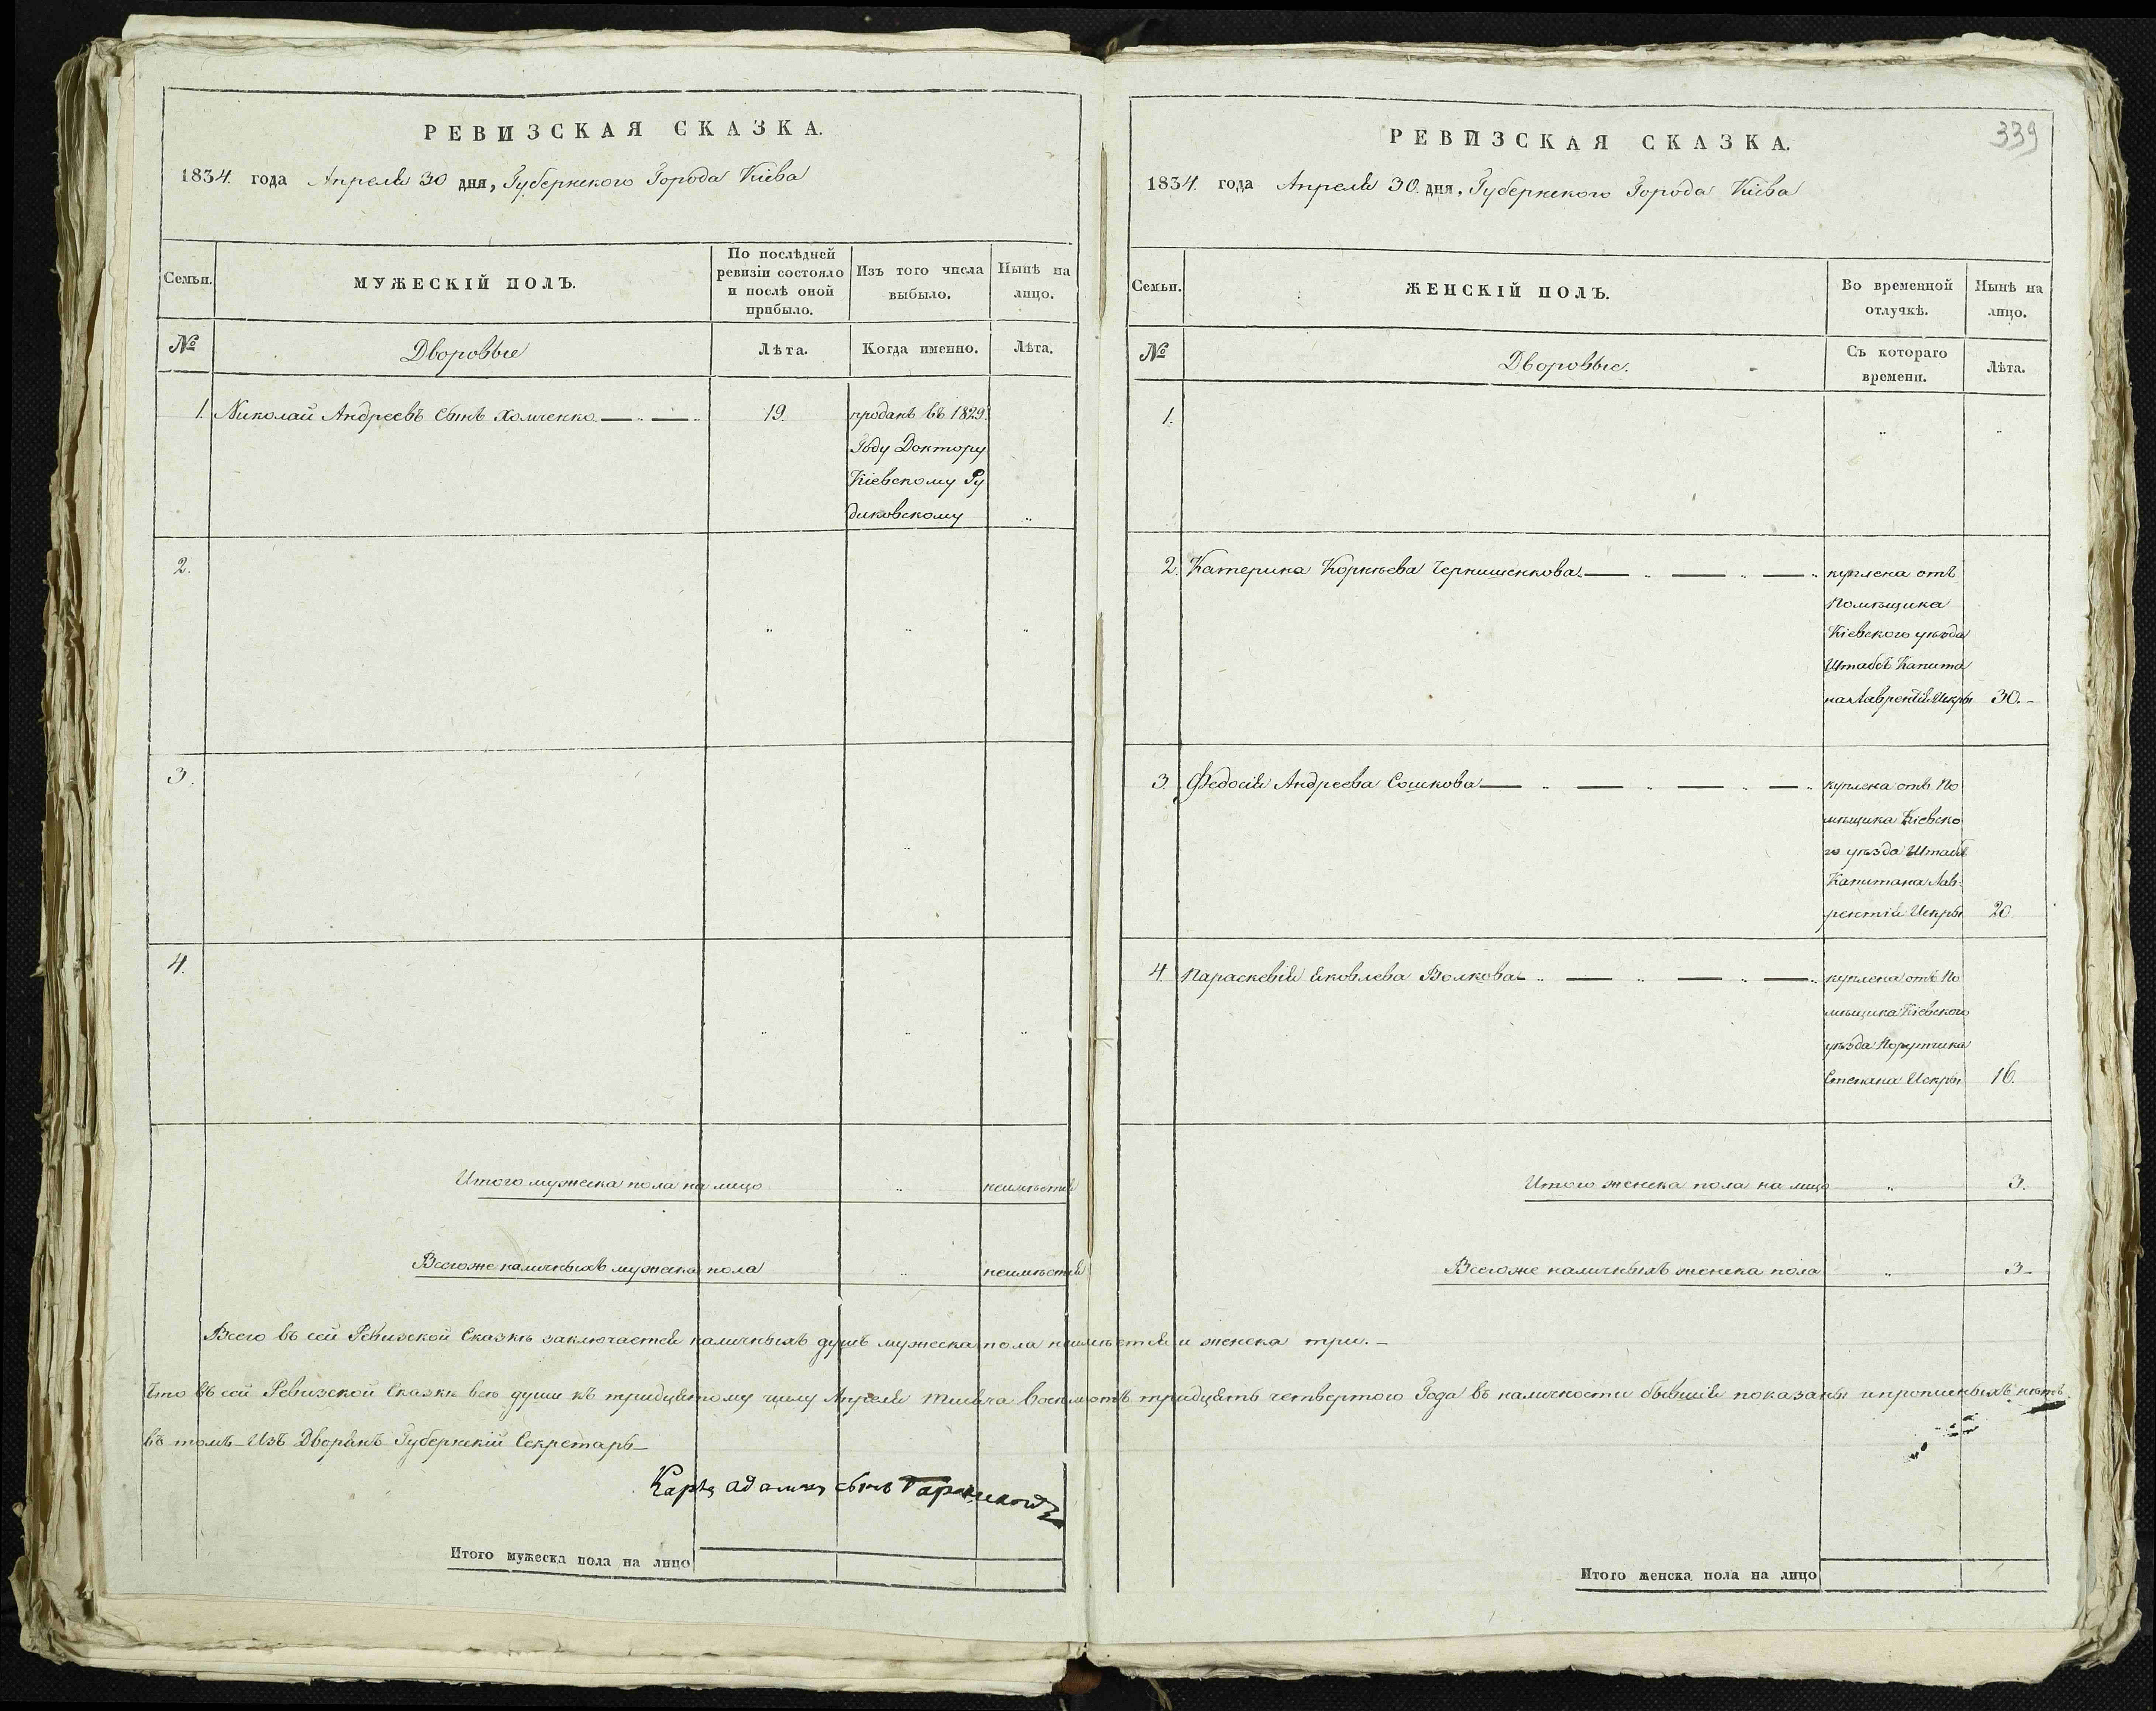 РЕВИЗСКАЯ СКАЗКА.
1834. года Апреля 30 дня, Губернского Города Кіева
Семьи.
МУЖЕСКІЙ ПОЛЪ.
По послѣдней
ревизіи состояло
и послѣ оной
прибыло.
Изъ того числа
выбыло.
Нынѣ на
лицо.
№
Дворовые
Лѣта.
Когда именно.
Лѣта.
1. Николай Андреевъ Сынъ Хомченко
19.
проданъ въ 1829.
Году Доктору
Кіевскому Ру
диковскому
2.
3.
4.
Итого мужеска пола на лицо
неимѣется
Всегоже наличныхъ мужеска пола
неимѣется
Всего въ сей Ревизской Сказкѣ заключается наличныхъ душъ мужеска пола неимѣется и женска три.
Что въ сей Ревизской Сказки всѣ души къ тридцятому числу Апреля тысяча восемьсотъ тридцять четвертого Года въ наличности бывшія показаны и прописныхъ нѣтъ
въ томъ Изъ Дворянъ Губернскій Секретарь
адамъ сынъ
Итого мужеска пола на лицо
339
РЕВИЗСКАЯ СКАЗКА.
1834. года Апреля 30. дня, Губернского Города Кіева
Семьи.
ЖЕНСКІЙ ПОЛЪ.
Во временной
отлучкѣ.
Нынѣ на
лицо.
№
Дворовые.
Съ котораго
времени.
Лѣта.
1.
2. Катерина Корнѣева Чернишенкова
куплена отъ
Помѣщика
Кіевского уѣзда
Штабсъ Капита
на Лаврентія Искры 30.
3. Федосія Андреева Сошкова
куплена отъ По
мѣщика Кіевско
го уѣзда Штабсъ
Капитана Лав-
рентія Искры 20
4. Параскевія Яковлева Волкова
куплена отъ По
мѣщика Кіевского
уѣзда Порутчика
Степана Искры 16.
Итого женска пола на лицо
3.
Всегоже наличныхъ женска пола
3
Итого женска пола на лицо